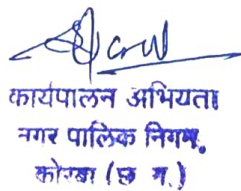 कार्यपालन अभियंता
नगर पालिक निगम,
कोरबा (छ. ग.)